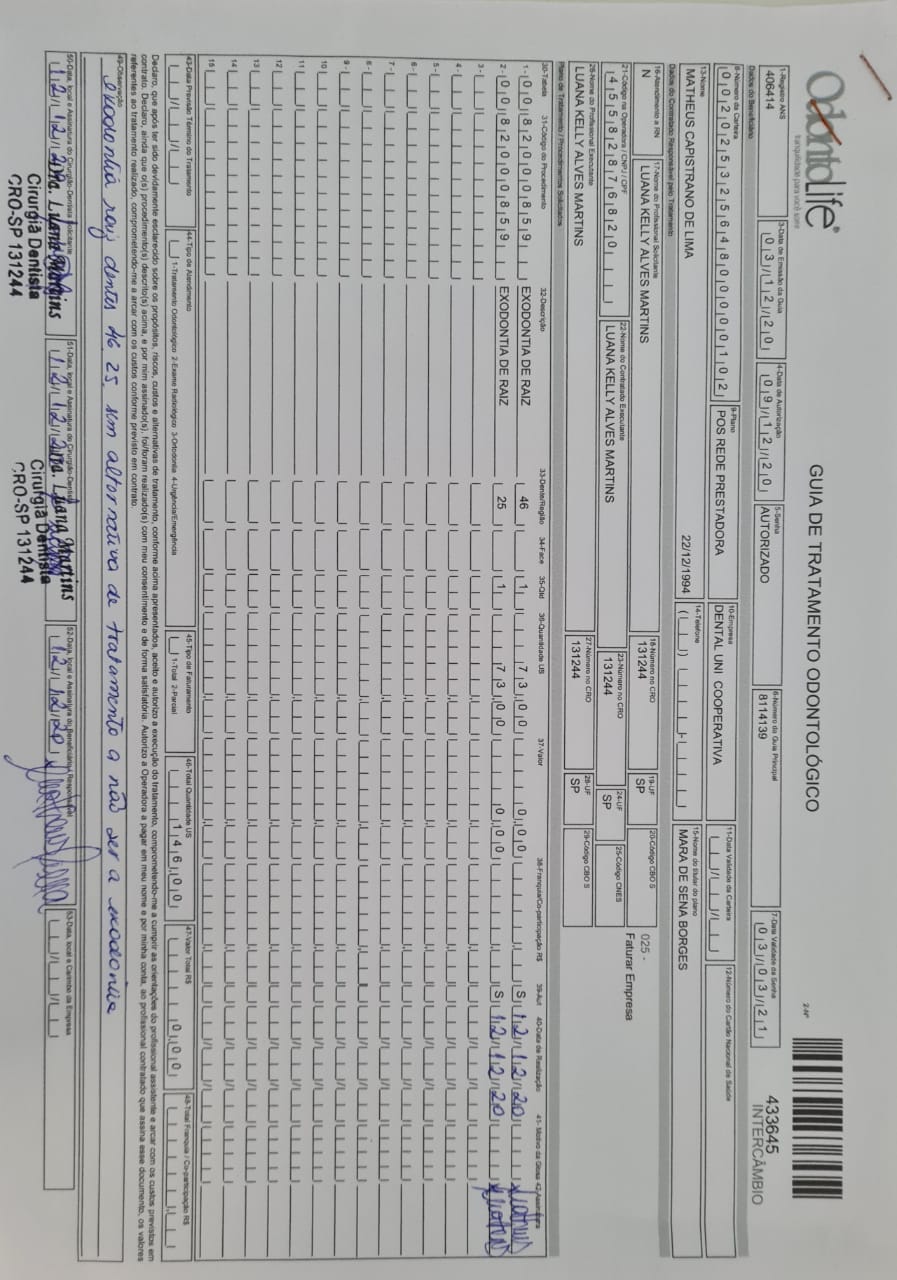 OdontoLife®
tranquilidade para você sorrir
GUIA DE TRATAMENTO ODONTOLÓGICO
2-Nº
433645
INTERCÂMBIO
1-Registro ANS
406414
3-Data de Emissão da Guia
03/12/20
4-Data de Autorização
09/12/20
5-Senha
AUTORIZADO
6-Número da Guia Principal
8114139
7-Data Validade da Senha
03/03/21
Dados do Beneficiário
8-Número da Carteira
00202532564800000102
9-Plano
POS REDE PRESTADORA
10-Empresa
DENTAL UNI COOPERATIVA
11-Data Validade da Carteira
12-Número do Cartão Nacional de Saúde
13-Nome
MATHEUS CAPISTRANO DE LIMA
22/12/1994
14-Telefone
15-Nome do titular do plano
MARA DE SENA BORGES
Dados do Contratado Responsável pelo Tratamento
16-Atendimento a RN
N
17-Nome do Profissional Solicitante
LUANA KELLY ALVES MARTINS
18-Número no CRO
131244
19-UF
SP
20-Código CBO S
025 -
Faturar Empresa
21-Código na Operadora / CNPJ / CPF
45582876820
22-Nome do Contratado Executante
LUANA KELLY ALVES MARTINS
23-Número no CRO
131244
24-UF
SP
25-Código CNES
26-Nome do Profissional Executante
LUANA KELLY ALVES MARTINS
27-Número no CRO
131244
28-UF
SP
29-Código CBO S
Plano de Tratamento / Procedimentos Solicitados
30-Tabela 31-Código do Procedimento 32-Descrição 33-Dente/Região 34-Face 35-Qtd 36-Quantidade US 37-Valor 38-Franquia/Co-participação R$ 39-Aut 40-Data de Realização 41-Motivo da Glosa 42-Assinatura
1- 00 82000859 EXODONTIA DE RAIZ 46 1 73,00 0,00 S 12/12/20
2- 00 82000859 EXODONTIA DE RAIZ 25 1 73,00 0,00 S 12/12/20
3-
4-
5-
6-
7-
8-
9-
10
11
12
13
14
15
43-Data Previsão Término do Tratamento
44-Tipo de Atendimento
1-Tratamento Odontológico 2-Exame Radiológico 3-Ortodontia 4-Urgência/Emergência
45-Tipo de Faturamento
1-Total 2-Parcial
46-Total Quantidade US
146,00
47-Valor Total R$
0,00
48-Total Franquia / Co-participação R$
Declaro, que após ter sido devidamente esclarecido sobre os propósitos, riscos, custos e alternativas de tratamento, conforme acima apresentados, aceito e autorizo a execução do tratamento, comprometendo-me a cumprir as orientações do profissional assistente e arcar com os custos previstos em
contrato. Declaro, ainda que o(s) procedimento(s) descrito(s) acima, e por mim assinado(s), foi/foram realizado(s) com meu consentimento e de forma satisfatória. Autorizo a Operadora a pagar em meu nome e por minha conta, ao profissional contratado que assina esse documento, os valores
referentes ao tratamento realizado, comprometendo-me a arcar com os custos conforme previsto em contrato.
49-Observação
exodontia raiz dentes 46 25 sem alternativa de tratamento a não ser a exodontia
50-Data, local e Assinatura do Cirurgião-Dentista Solicitante
12/12/20
Dra. Luana Martins
Cirurgiã Dentista
CRO-SP 131244
51-Data, local e Assinatura do Cirurgião-Dentista
12/12/20
Dra. Luana Martins
Cirurgiã Dentista
CRO-SP 131244
52-Data, local e Assinatura do Beneficiário / Responsável
12/12/20
53-Data, local e Carimbo da Empresa